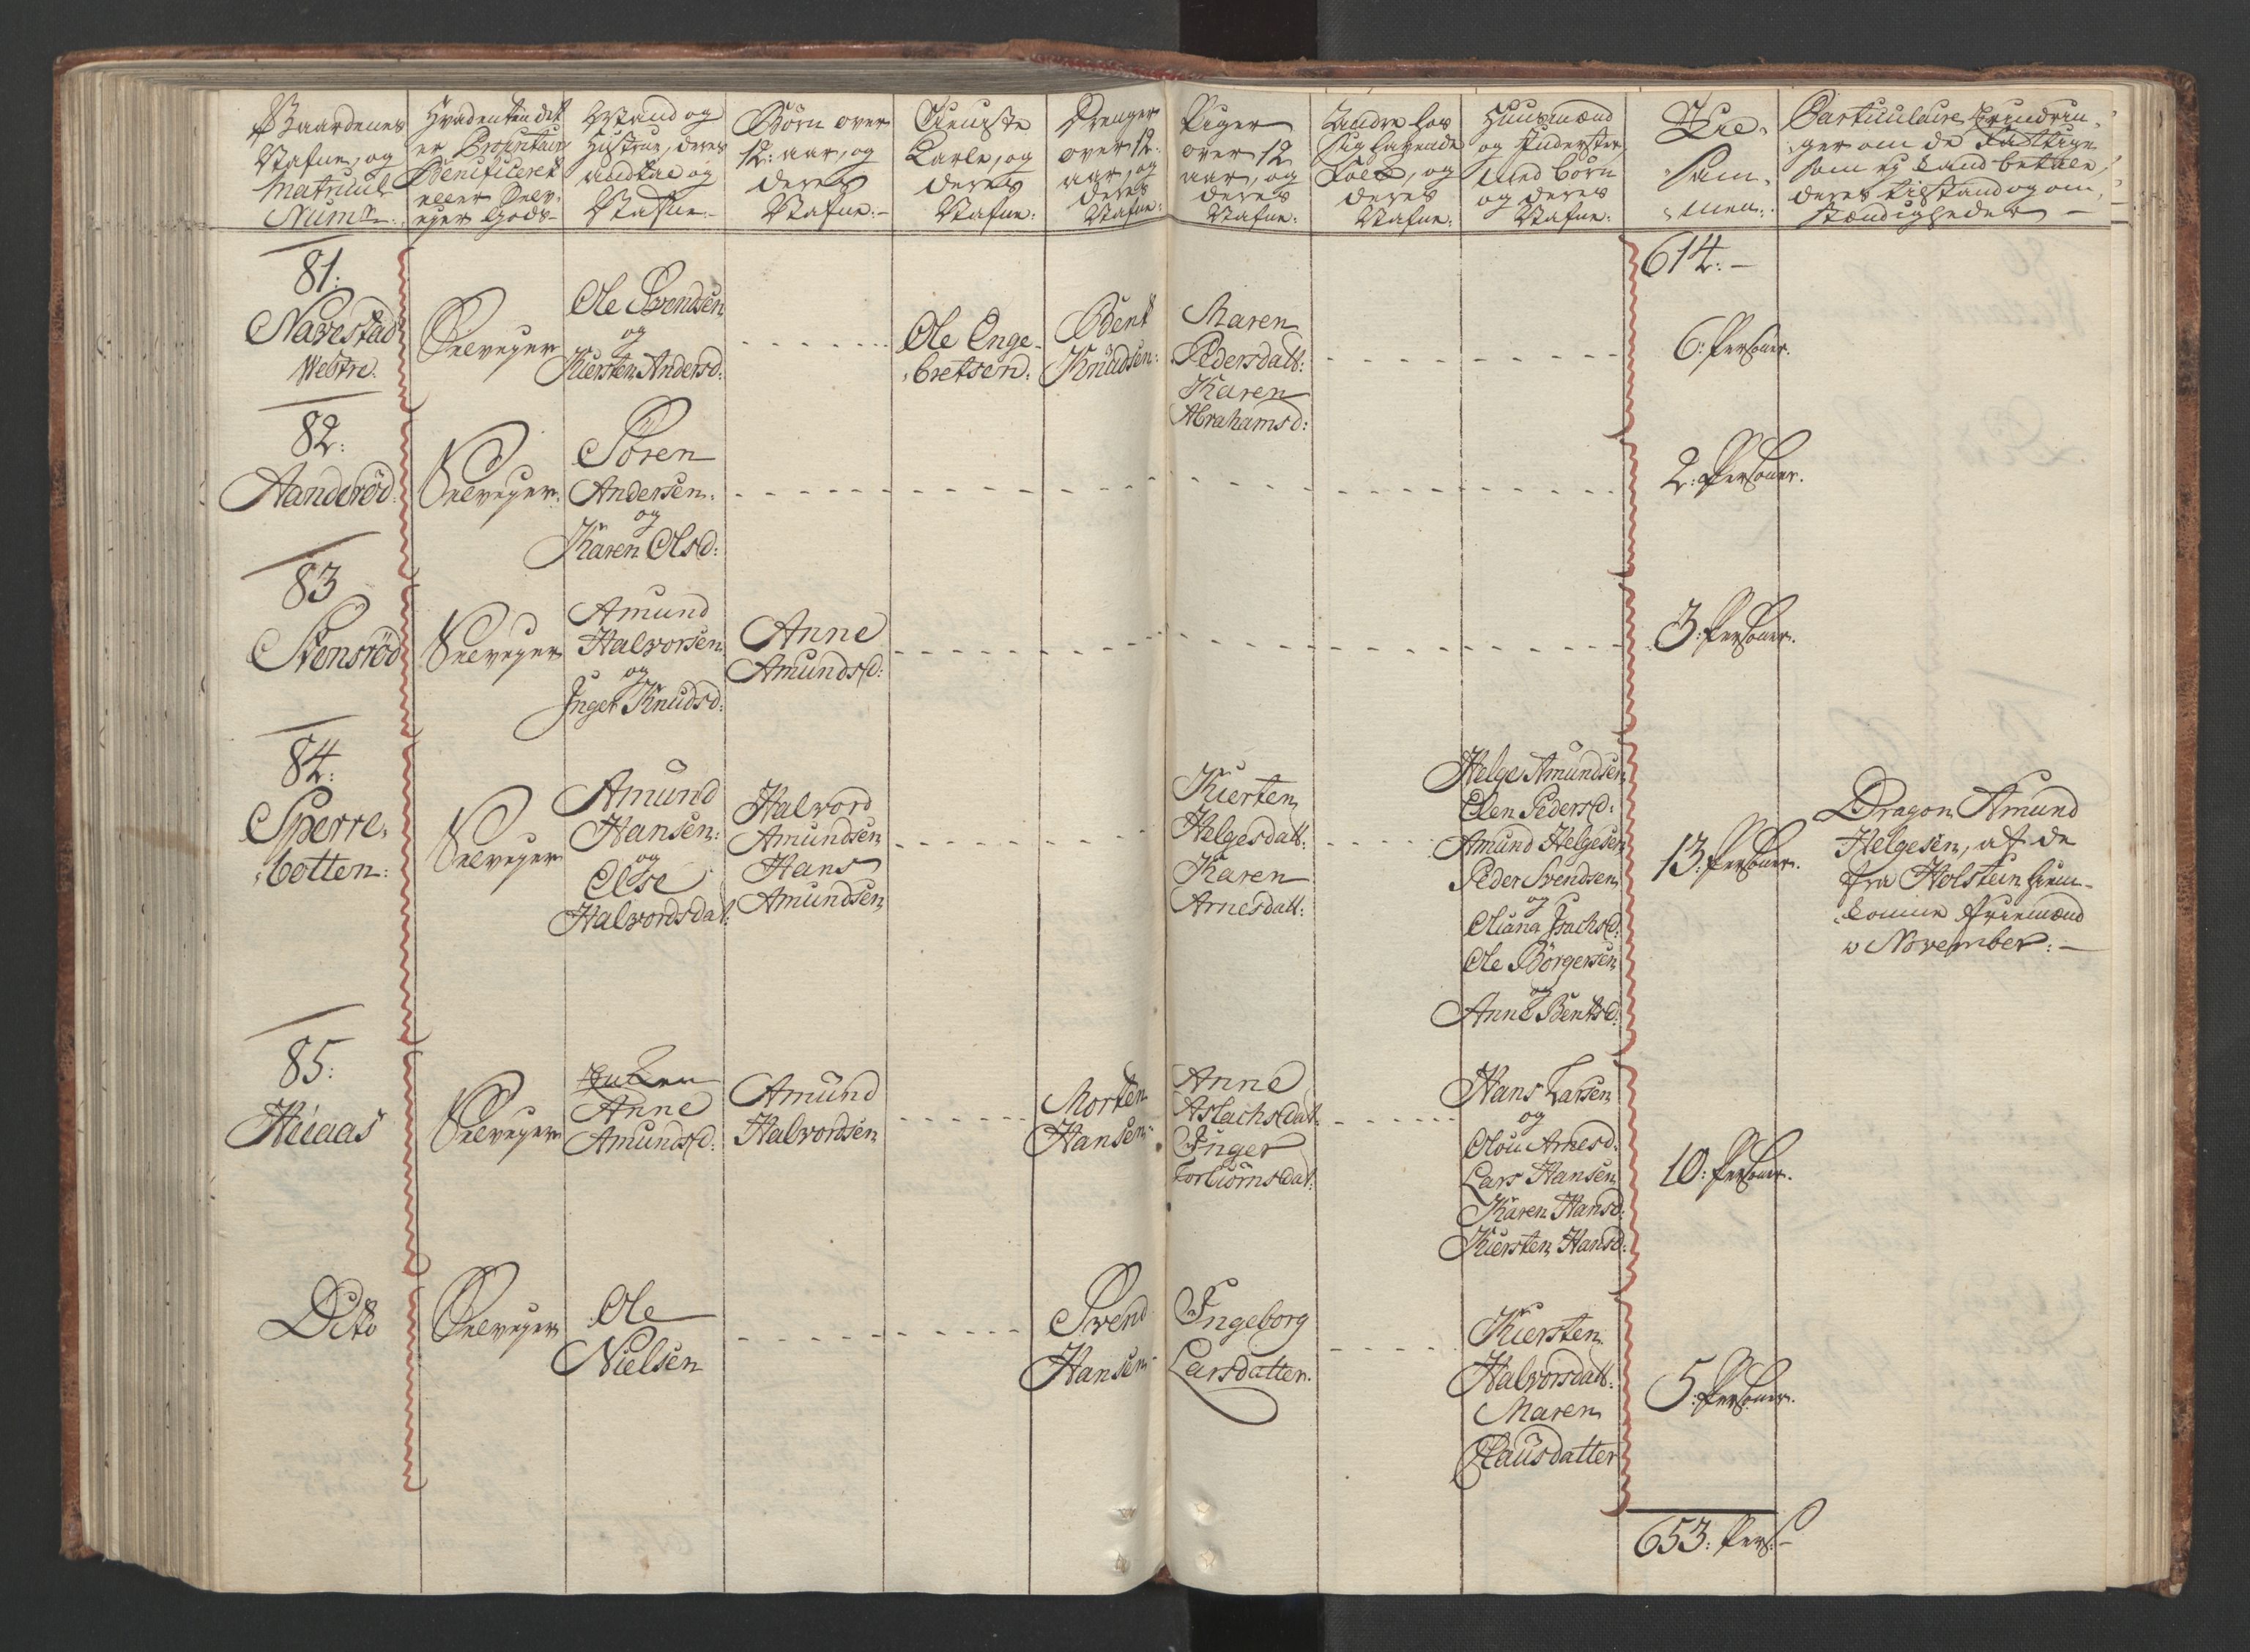 Gaardenes
Nafne, og
Matricul
Num:
Hvadenten det
er Proprietair
Benificeret
eller Selv-
ejer Gods-
Mand og
Hustrue, deres
Antal og
Nafne:-
Börn over
12: aar, og
deres
Nafne:-
Tieniste
Karle, og
deres
Nafne:
Drenger
over 12:
aar, og
deres
Nafne:
Piger
over 12
aar, og
deres
Nafne:
Andre hos
sig havende
Folk, og
deres
Nafne:
Huusmænd
og Inderster
med börn
og deres
Nafne:
Til-
sam-
men:
Particulaire Erindrin-
ger om de Fattige
som ej kand betale,
deres tilstand og om-
stændigheder -
614:-
81:
Navestad
Westre.
Selvejer
Ole Svendsen
og
Kiersten Andersd:
Ole Enge-
bretsen:
Bent
Knudsen:
Maren
Pedersdatt:
Karen
Abrahamsd:
6: Personer.
82:
Aanderöd.
Selvejer.
Sören
Andersen.
og
Karen Olsd:
2: Personer.
83
Stensröd
Selvejer
Amund
Halvorsen
og
Inger Knudsd:
Anne
Amundsd:
3: Personer.
84:
Sperre-
botten:
Selvejer
Amund
Hansen:
og
Else
Halvordsdat:
Halvord
Amundsen
Hans
Amundsen
Kierten
Helgesdatt:
Karen
Arnesdatt:
Helge Amundsen
Elen Pedersd:
Amund Helgesen
Peder Svendsen
og
Oliana Isachsd:
Ole Börgersen
og
Anne Bentsd:
13: Personer.
Dragon Amund
Helgesen, af de
fra Holsteen hiem-
komne friemænd
November:-
85:
Hiiaas
Selvejer
Enken
Anne
Amundsd:
Amund
Halvordsen
Morten
Hansen
Anne
Aslachsdat:
Inger
Torbiörnsdat:
Hans Larsen
og
Olou Arnesd:
Lars Hansen
Karen Hansd:
Kiersten Hansd:
10: Personer.
Dito
Selvejer
Ole
Nielsen
Svend
Hansen
Ingeborg
Larsdatter.
Kiersten
Halvorsdatt:
Maren
Clausdatter
5: Personer.
653: Pers:-